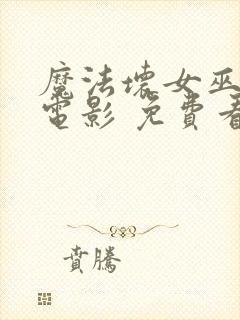 魔法壞女巫
電影 免費看
賁騰